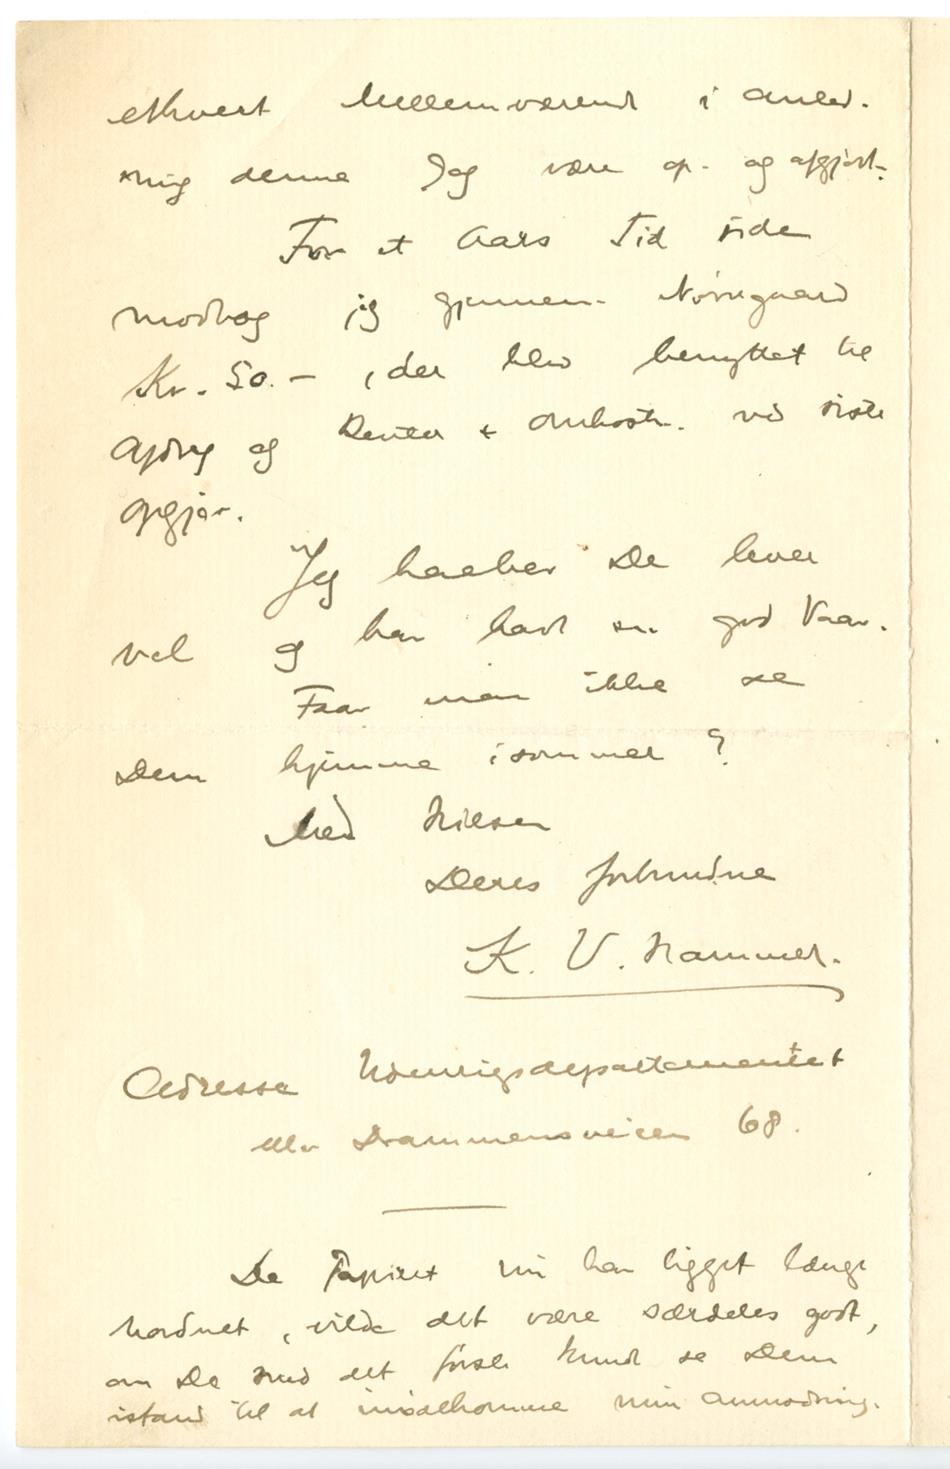 ethvert Mellemværende i anled-
ning denne Sag være op- og afgjort.
For et Aars Tid siden
modtog jeg gjennem Nørregaard
Kr. 50.-, der blev benyttet til
Afdrag og Renter & Omkostn. ved siste
Opgjør.
Jeg haaber De lever
vel og har havt en god Vaar.
Faar man ikke se
Dem hjemme isommer?
Med Hilsen
Deres forbundne
K. V. Hammer.
Adresse Utenrigsdepartementet
eller Drammensveien 68.
Da Papiret nu har ligget længe
uordnet, vilde det være særdeles godt,
om De med det første kunde se Dem
istand til at imødekomme min Anmodning.